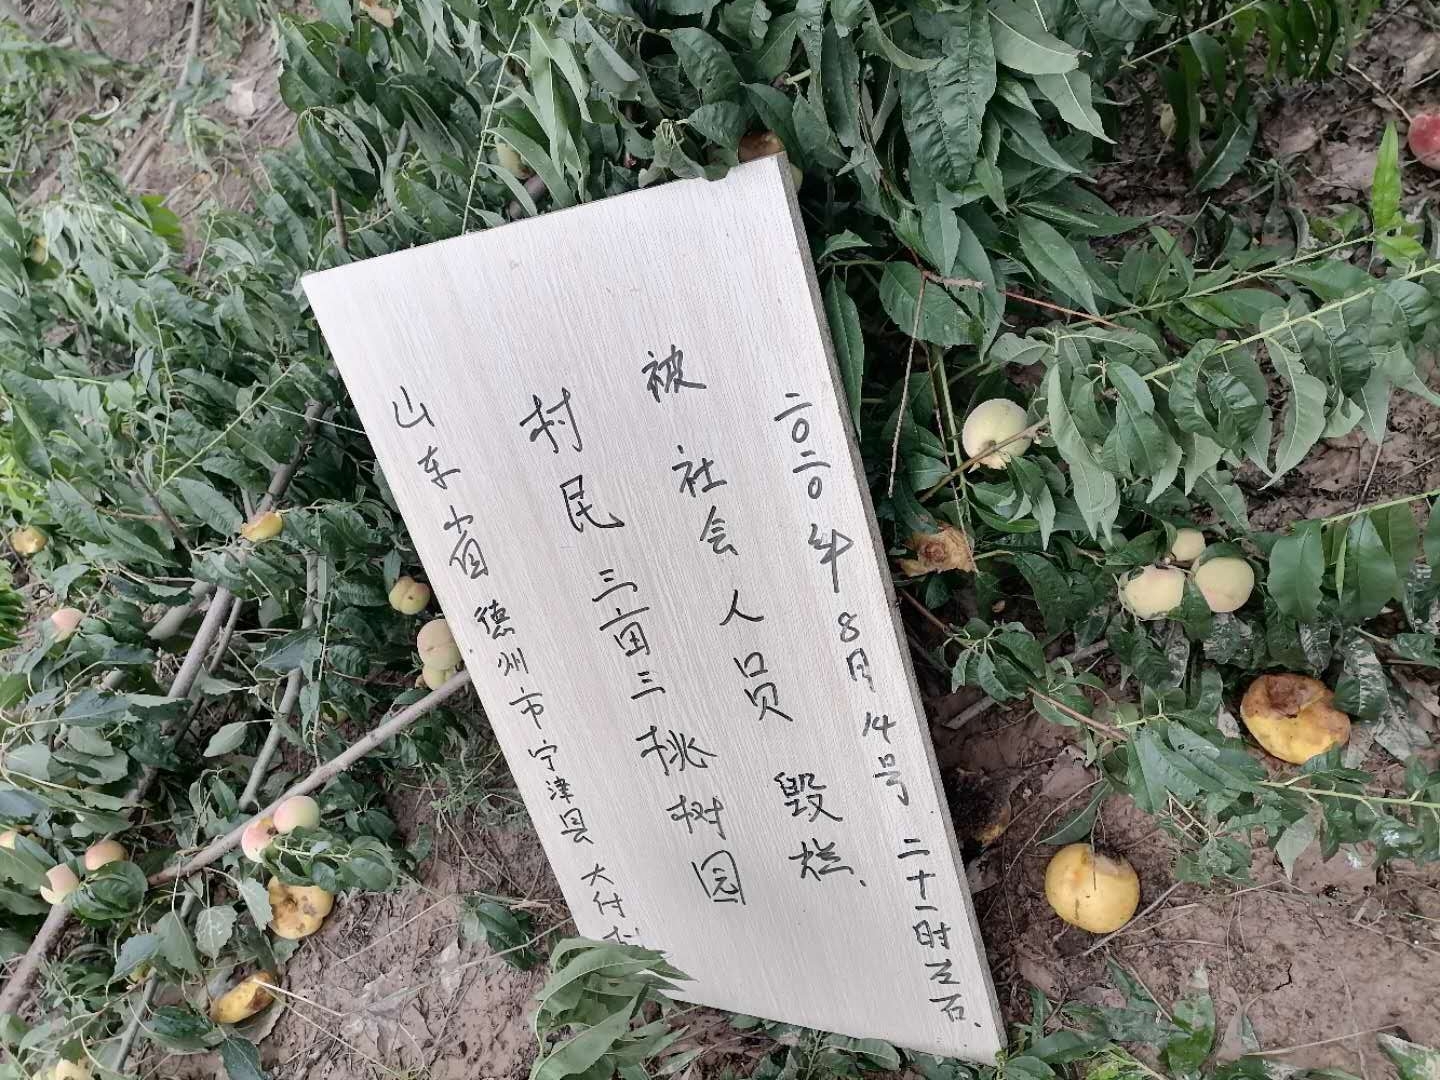 山东省德州市宁津县大付村
村民三亩三桃树园
被社会人员毁栏.
二〇二〇年8月14号二十一时左右.